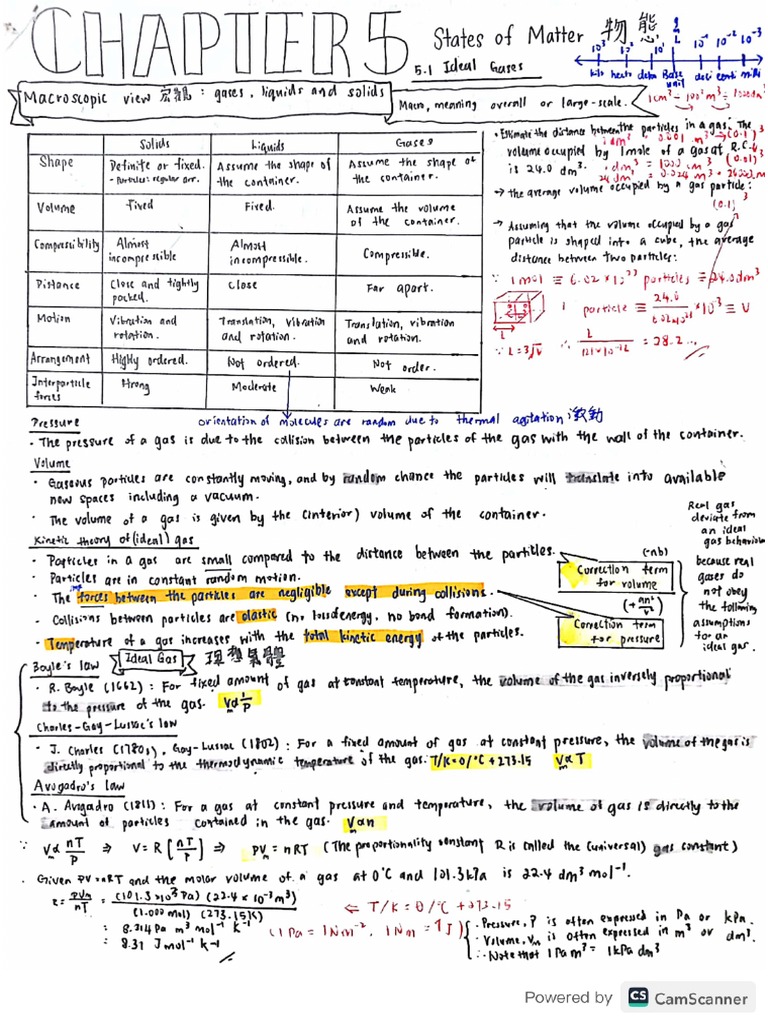 CHAPTER 5
States of Matter 物態
5.1 Ideal Gases
10³ 10² 10¹ 10⁻¹ 10⁻² 10⁻³
kilo hecto deka Base unit deci centi milli
Macroscopic view 宏觀: gases, liquids and solids
Macro, meaning overall or large-scale.
Solids Liquids Gases
Shape
Definite or fixed.
Assume the shape of the container.
Assume the shape of the container.
Volume
Fixed
Fixed.
Assume the volume of the container.
Compressibility
Almost incompressible
Almost incompressible.
Compressible.
Distance
Close and tightly packed.
Close
Far apart.
Motion
Vibration and rotation.
Translation, vibration and rotation.
Translation, vibration and rotation.
Arrangement
Highly ordered.
Not ordered.
Not order.
Interparticle forces
Strong
Moderate
Weak
• Estimate the distance between the particles in a gas. The
volume occupied by 1 mole of a gas at R.C.
is 24.0 dm³.
→ the average volume occupied by a gas particle:
→ Assuming that the volume occupied by a gas
particle is shaped into a cube, the average
distance between two particles:
∵ 1 mol ≡ 6.02 × 10²³ particles ≡ 24.0dm³
1 particle ≡
× 10⁻³ ≡ V
∵ L = 3√V
= 28.2...
orientation of molecules are random due to thermal agitation 激動
Pressure
• The pressure of a gas is due to the collision between the particles of the gas with the wall of the container.
Volume
• Gaseous particles are constantly moving, and by random chance the particles will translate into available
new spaces including a vacuum.
• The volume of a gas is given by the (interior) volume of the container.
Kinetic theory of (ideal) gas
• Particles in a gas are small compared to the distance between the particles.
• Particles are in constant random motion.
• The forces between the particles are negligible except during collisions.
• Collisions between particles are elastic (no loss of energy, no bond formation).
• Temperature of a gas increases with the total kinetic energy of the particles.
(-nb)
Correction term
for volume
(+ an²/V)
Correction term
for pressure
Real gas
deviate from
an ideal
gas behavior
because real
gases do
not obey
the following
assumptions
for an
ideal gas.
Ideal Gas 理想氣體
Boyle's law
• R. Boyle (1662): For fixed amount of gas at constant temperature, the volume of the gas inversely proportional
to the pressure of the gas. V∝1/P
Charles-Gay-Lussac's law
• J. Charles (1780s), Gay-Lussac (1802): For a fixed amount of gas at constant pressure, the volume of the gas is
directly proportional to the thermodynamic temperature of the gas. T/K=θ/°C+273.15 V∝T
Avogadro's law
• A. Avogadro (1811): For a gas at constant pressure and temperature, the volume of gas is directly to the
amount of particles contained in the gas. V∝n
∵ V∝ nT/P ⇒ V = R [nT/P] ⇒ PVm = nRT (The proportionality constant R is called the (universal) gas constant)
• Given PV=nRT and the molar volume of a gas at 0°C and 101.3kPa is 22.4 dm³ mol⁻¹.
R = PVm/nT = (101.3×10³ Pa) (22.4 × 10⁻³ m³) / (1.000 mol) (273.15K)
⇐ T/K = θ/°C + 273.15
= 8.314 Pa m³ mol⁻¹ K⁻¹
(1Pa = 1Nm⁻², 1Nm = 1J)
= 8.31 J mol⁻¹ K⁻¹
• Pressure, P is often expressed in Pa or kPa.
• Volume, Vm is often expressed in m³ or dm³.
∴ Note that 1 Pa m³ = 1kPa dm³
Powered by CS CamScanner